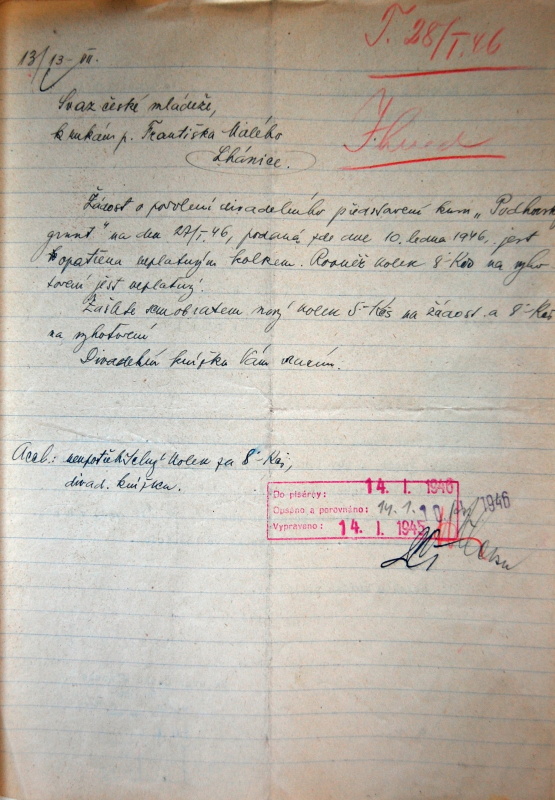 T. 28/I. 46
13/13-VII.
Svaz české mládeže,
k rukám p. Františka Malého
Lhánice.
Žádost o povolení divadelního představení kusu „Podhorský
grunt" na den 27/I. 46, podaná zde dne 10. ledna 1946, jest
opatřena neplatným kolkem. Rovněž kolek 8·Kčs na vyho-
tovení jest neplatný.
Zašlete sem obratem nový kolek 5·Kčs na žádost a 8·Kčs
na vyhotovení
Divadelní knížku Vám vracím.
kolek za 8·Kčs,
divad. knížka.
Do písárny: 14. I. 1946
Opsáno a porovnáno: 14. 1. 1946
Vypraveno: 14. I. 1945